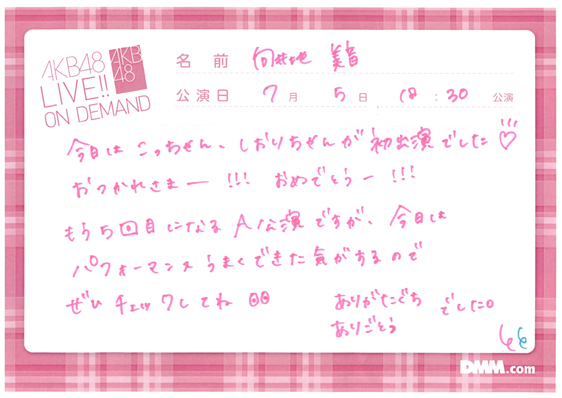 AKB48
LIVE!!
ON DEMAND
AKB
48
名前 向井地 美音
公演日 7月 5日 18:30 公演
今日は こっちゃん、しおりちゃんが 初出演でした♡
おつかれさまー!!! おめでとうー!!!
もう5回目になるA公演ですが、今日は
パフォーマンスうまくできた気がするので
ぜひ チェックしてね
ありがたぐち
ありごとう でした。
DMM.com